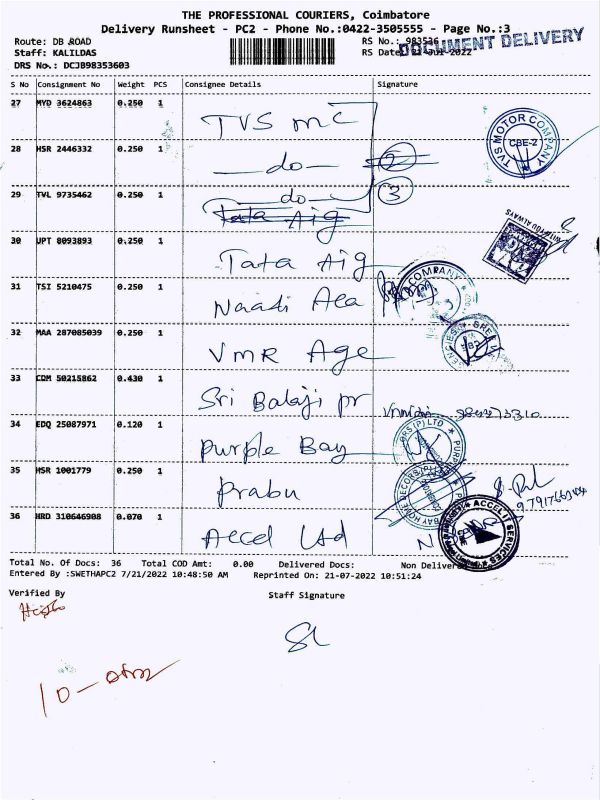 THE PROFESSIONAL COURIERS, Coimbatore
Delivery Runsheet - PC2 - Phone No.:0422-3505555 - Page No.:3
Route: DB ROAD
Staff: KALILDAS
DRS No.: DCJB98353603
RS No.: 983536
RS Date: 21-Jul-2022
DOCUMENT DELIVERY
S No Consignment No Weight PCS Consignee Details Signature
27 MYD 3624863 0.250 1 TVS mc
TVS MOTOR COMPANY CBE-2
28 HSR 2446332 0.250 1 —do— 2
29 TVL 9735462 0.250 1 —do— 3
Tata Aig
30 UPT 8093893 0.250 1 Tata Aig
WITH YOU ALWAYS
31 TSI 5210475 0.250 1 Naadi Aea
COMPANY
32 MAA 287085039 0.250 1 VMR Age
33 COM 50215862 0.430 1 Sri Balaji pr
34 EDQ 25087971 0.120 1 purple Bay
35 HSR 1001779 0.250 1 prabu
36 HRD 310646908 0.070 1 Accel Ltd
ACCEL IT SERVICES
Total No. Of Docs: 36 Total COD Amt: 0.00 Delivered Docs: Non Deliver
Entered By :SWETHAPC2 7/21/2022 10:48:50 AM Reprinted On: 21-07-2022 10:51:24
Verified By
Staff Signature